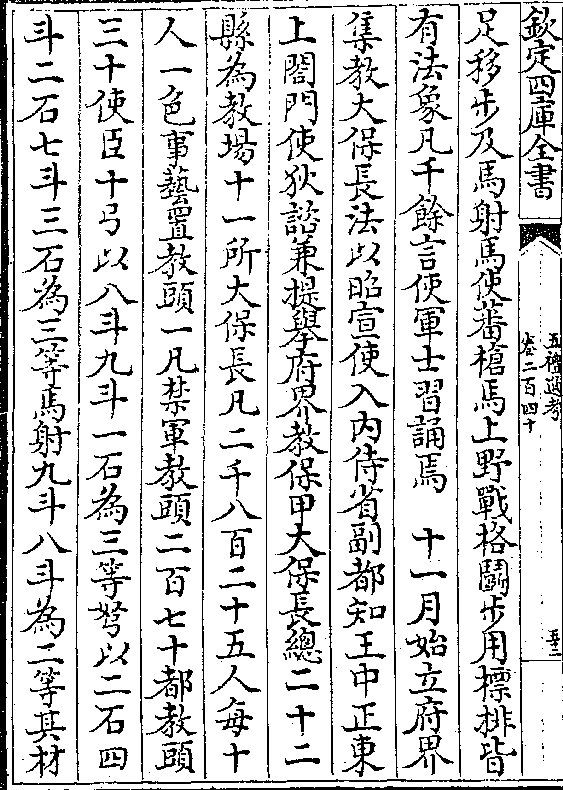 欽定四庫全書
五禮通考
卷二百四十
足移步及馬射馬使蕃槍馬上野戰格鬭步用標排皆
有法象凡千餘言使軍士習誦焉　十一月始立府界
集教大保長法以昭宣使入内侍省副都知王中正東
上閤門使狄諮兼提舉府界教保甲大保長總二十二
縣為教場十一所大保長凡二千八百二十五人每十
人一色事藝置教頭一凡禁軍教頭二百七十都教頭
三十使臣十弓以八斗九斗一石為三等弩以二石四
斗二石七斗三石為三等馬射九斗八斗為二等其材